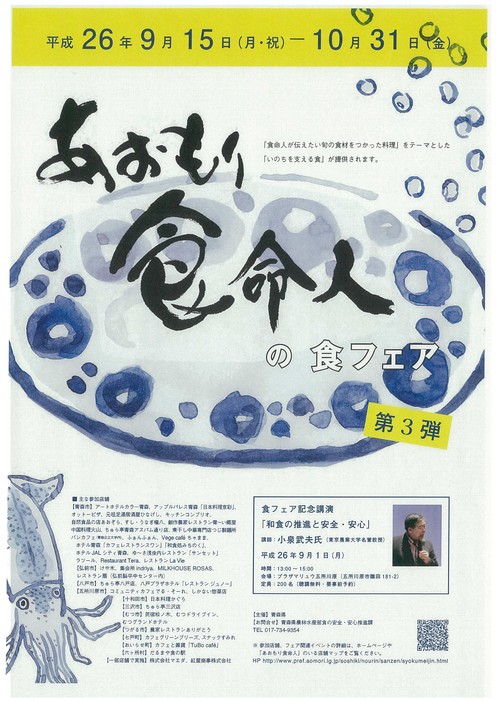 平成 26 年 9 月 15 日 (月・祝) ー 10 月 31 日 (金)
あおもり
「食命人が伝えたい旬の食材をつかった料理」をテーマとした
「いのちを支える食」が提供されます。
食命人
の 食フェア
第3弾
■ 主な参加店舗
【青森市】アートホテルカラー青森、アップルパレス青森「日本料理彩」、
オットーピザ、元祖足湯居酒屋ひなびし、キッチンコンプリオ、
自然食品の店あおぞら、すし・うなぎ種八、創作農家レストラン青〜い郷里
中国料理火山、ちゅら亭青森アスパム通り店、煮干し中華専門店つじ製麺所
パンカフェ ふぁんふぁん、Vege café ちゃまま、
ホテル青森「カフェレストランスワン」「和食処みちのく」、
ホテル JAL シティ青森、ゆーさ浅虫内レストラン「サンセット」
ラソール、Restaurant Tera、レストラン La Vie
【弘前市】けや木、集会所 indriya、MILKHOUSE ROSAS、
レストラン煕（弘前駅中央センター内）
【八戸市】ちゅら亭八戸店、八戸プラザホテル「レストランジュノー」
【五所川原市】コミュニティカフェでる・そーれ、しかない惣菜店
【十和田市】日本料理かぐら
【三沢市】ちゅら亭三沢店
【むつ市】炭焙松ノ木、むつドライブイン、
むつグランドホテル
【つがる市】農家レストランありがとう
【七戸町】カフェグリーンブリーズ、スナックすみれ
【おいらせ町】カフェと雑貨「TuBo café」
【六ヶ所村】だるまや食の駅
【一部店舗で実施】株式会社マエダ、紅屋商事株式会社
食フェア記念講演
「和食の推進と安全・安心」
講師：小泉武夫氏（東京農業大学名誉教授）
平成 26 年 9 月 1 日（月）
時間：13:00 〜 15:00
会場：プラザマリュウ五所川原（五所川原市鎌谷 181-2）
定員：200 名（聴講無料・要事前予約）
【主催】青森県
【お問合せ】青森県農林水産部食の安全・安心推進課
TEL 017-734-9354
※ 参加店舗、フェア関連イベントの詳細は、ホームページや
「あおもり食命人」のいる店舗マップをご覧ください。
HP http://www.pref.aomori.lg.jp/soshiki/nourin/sanzen/syokumeijin.html